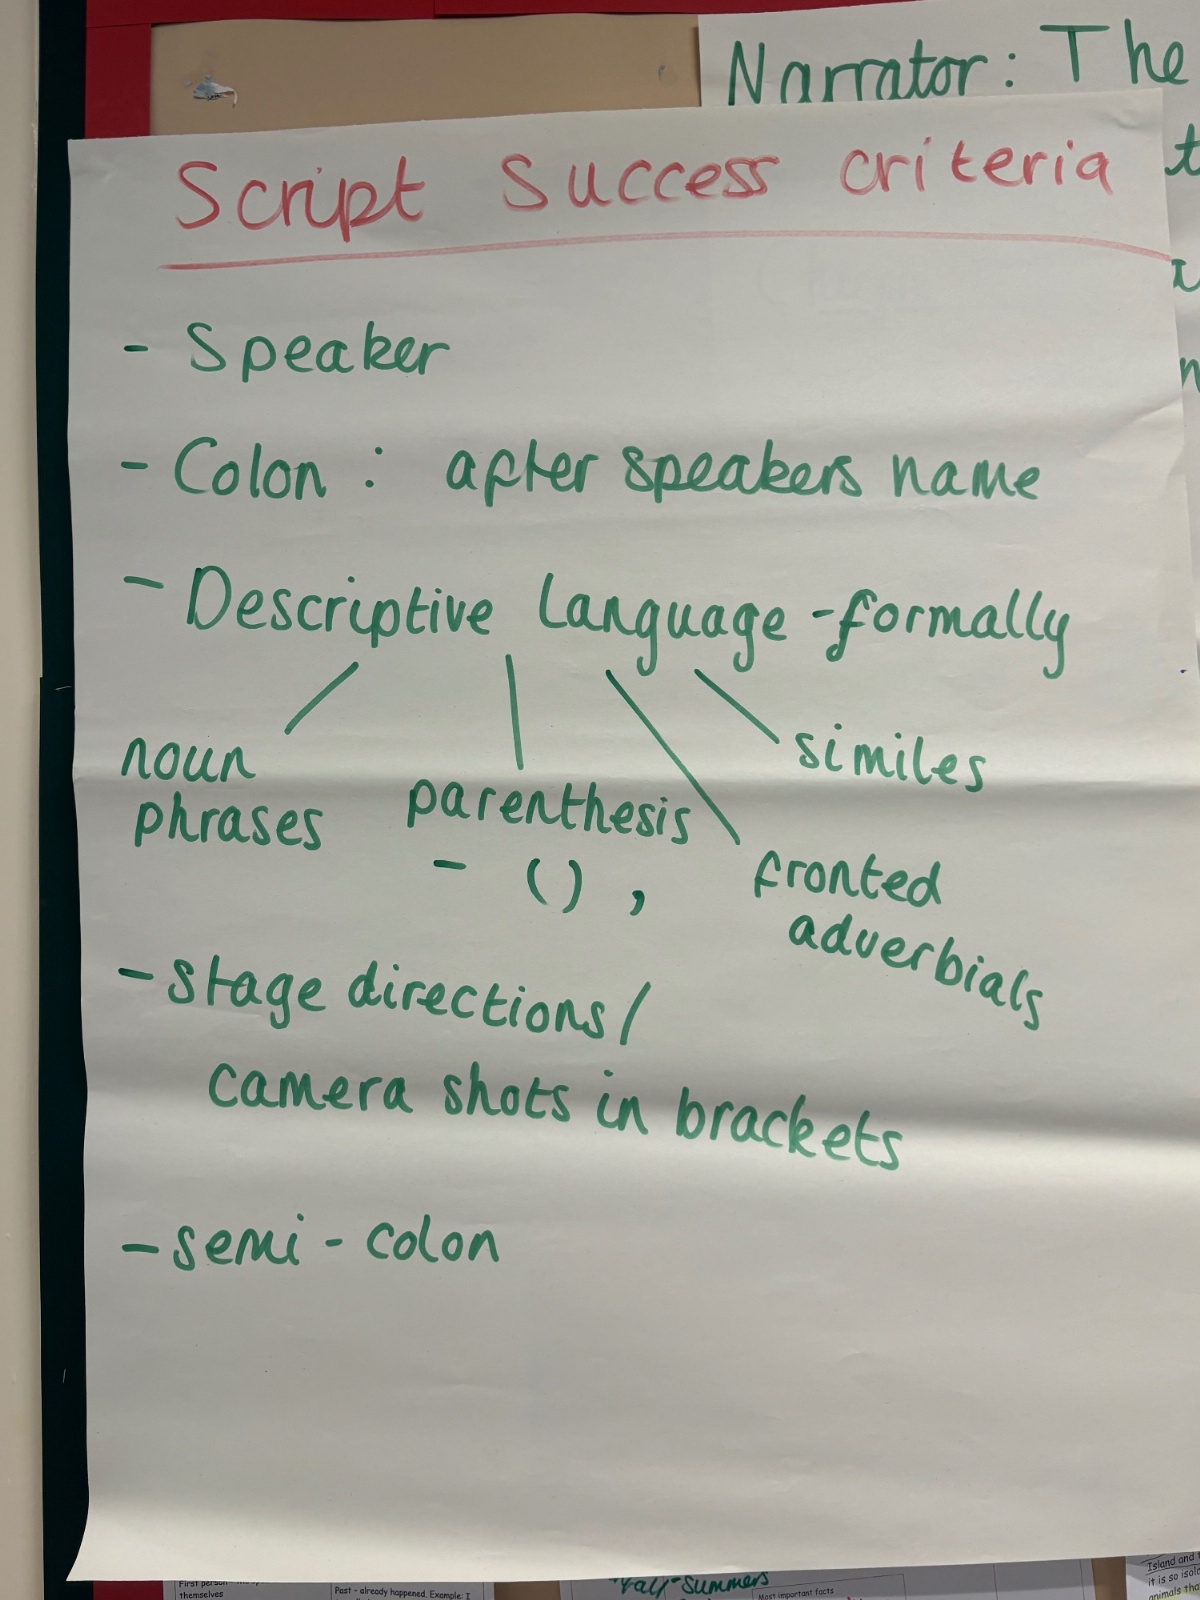 Narrator: The
Script Success criteria
- Speaker
- Colon : after speakers name
- Descriptive language - formally
noun
phrases
parenthesis
- () ,
similes
fronted
adverbials
- stage directions/
camera shots in brackets
- semi - colon
First person
themselves
Past - already happened. Example: I
Most important facts
Island and
it is so isol
animals tha